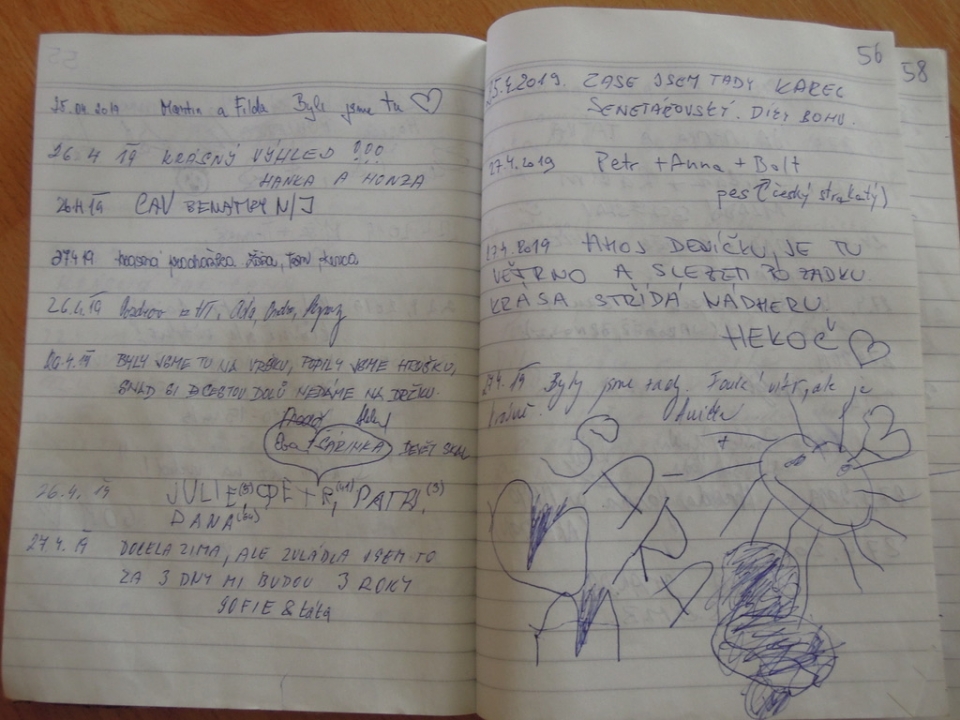 25.04.2019 Martin a Filda Byli jsme tu
26.4 19 KRÁSNÝ VÝHLED !!!
HANKA A HONZA
26.4.19 ČAV BENÁTKY N/J
27.4.19 krásná procházka
26.4.19
26.4.19 BYLY JSME TU NA VRŠKU, POPILY JSME HRUŠKU,
SNAD SI CESTOU DOLŮ NEDÁME NA DRŽKU.
Eva + SÁRINKA DEVĚT SKAL
26.4. 19 JULIE
DANA
27.4.19 DOCELA ZIMA, ALE ZVLÁDLA JSEM TO
ZA 3 DNY MI BUDOU 3 ROKY
SOFIE & táta
56
58
25.4.2019. ZASE JSEM TADY KAREL
SENETÁŘOVSKÝ. DÍKY BOHU.
27.4.2019 Petr + Anna + Bolt
pes (český strakatý)
27.4.2019 AHOJ DENÍČKU, JE TU
VĚTRNO A SLEZEM PO ZADKU.
KRÁSA STŘÍDÁ NÁDHERU
HEKOČ
27.4. 19 Byly jsme tady. Fouká vítr, ale je
krásně.